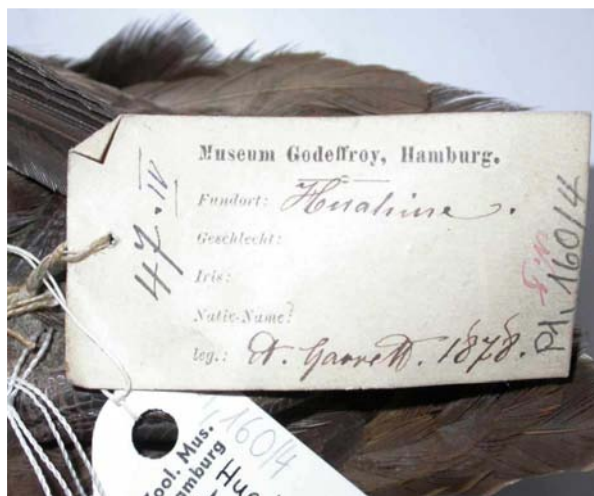 Museum Godeffroy, Hamburg.
Fundort: Huahine.
Geschlecht:
Iris:
Nativ-Name:
leg.: A. Garrett. 1878.
47. IV
P1. 160/4
160/4
Zool. Mus.
Hamburg